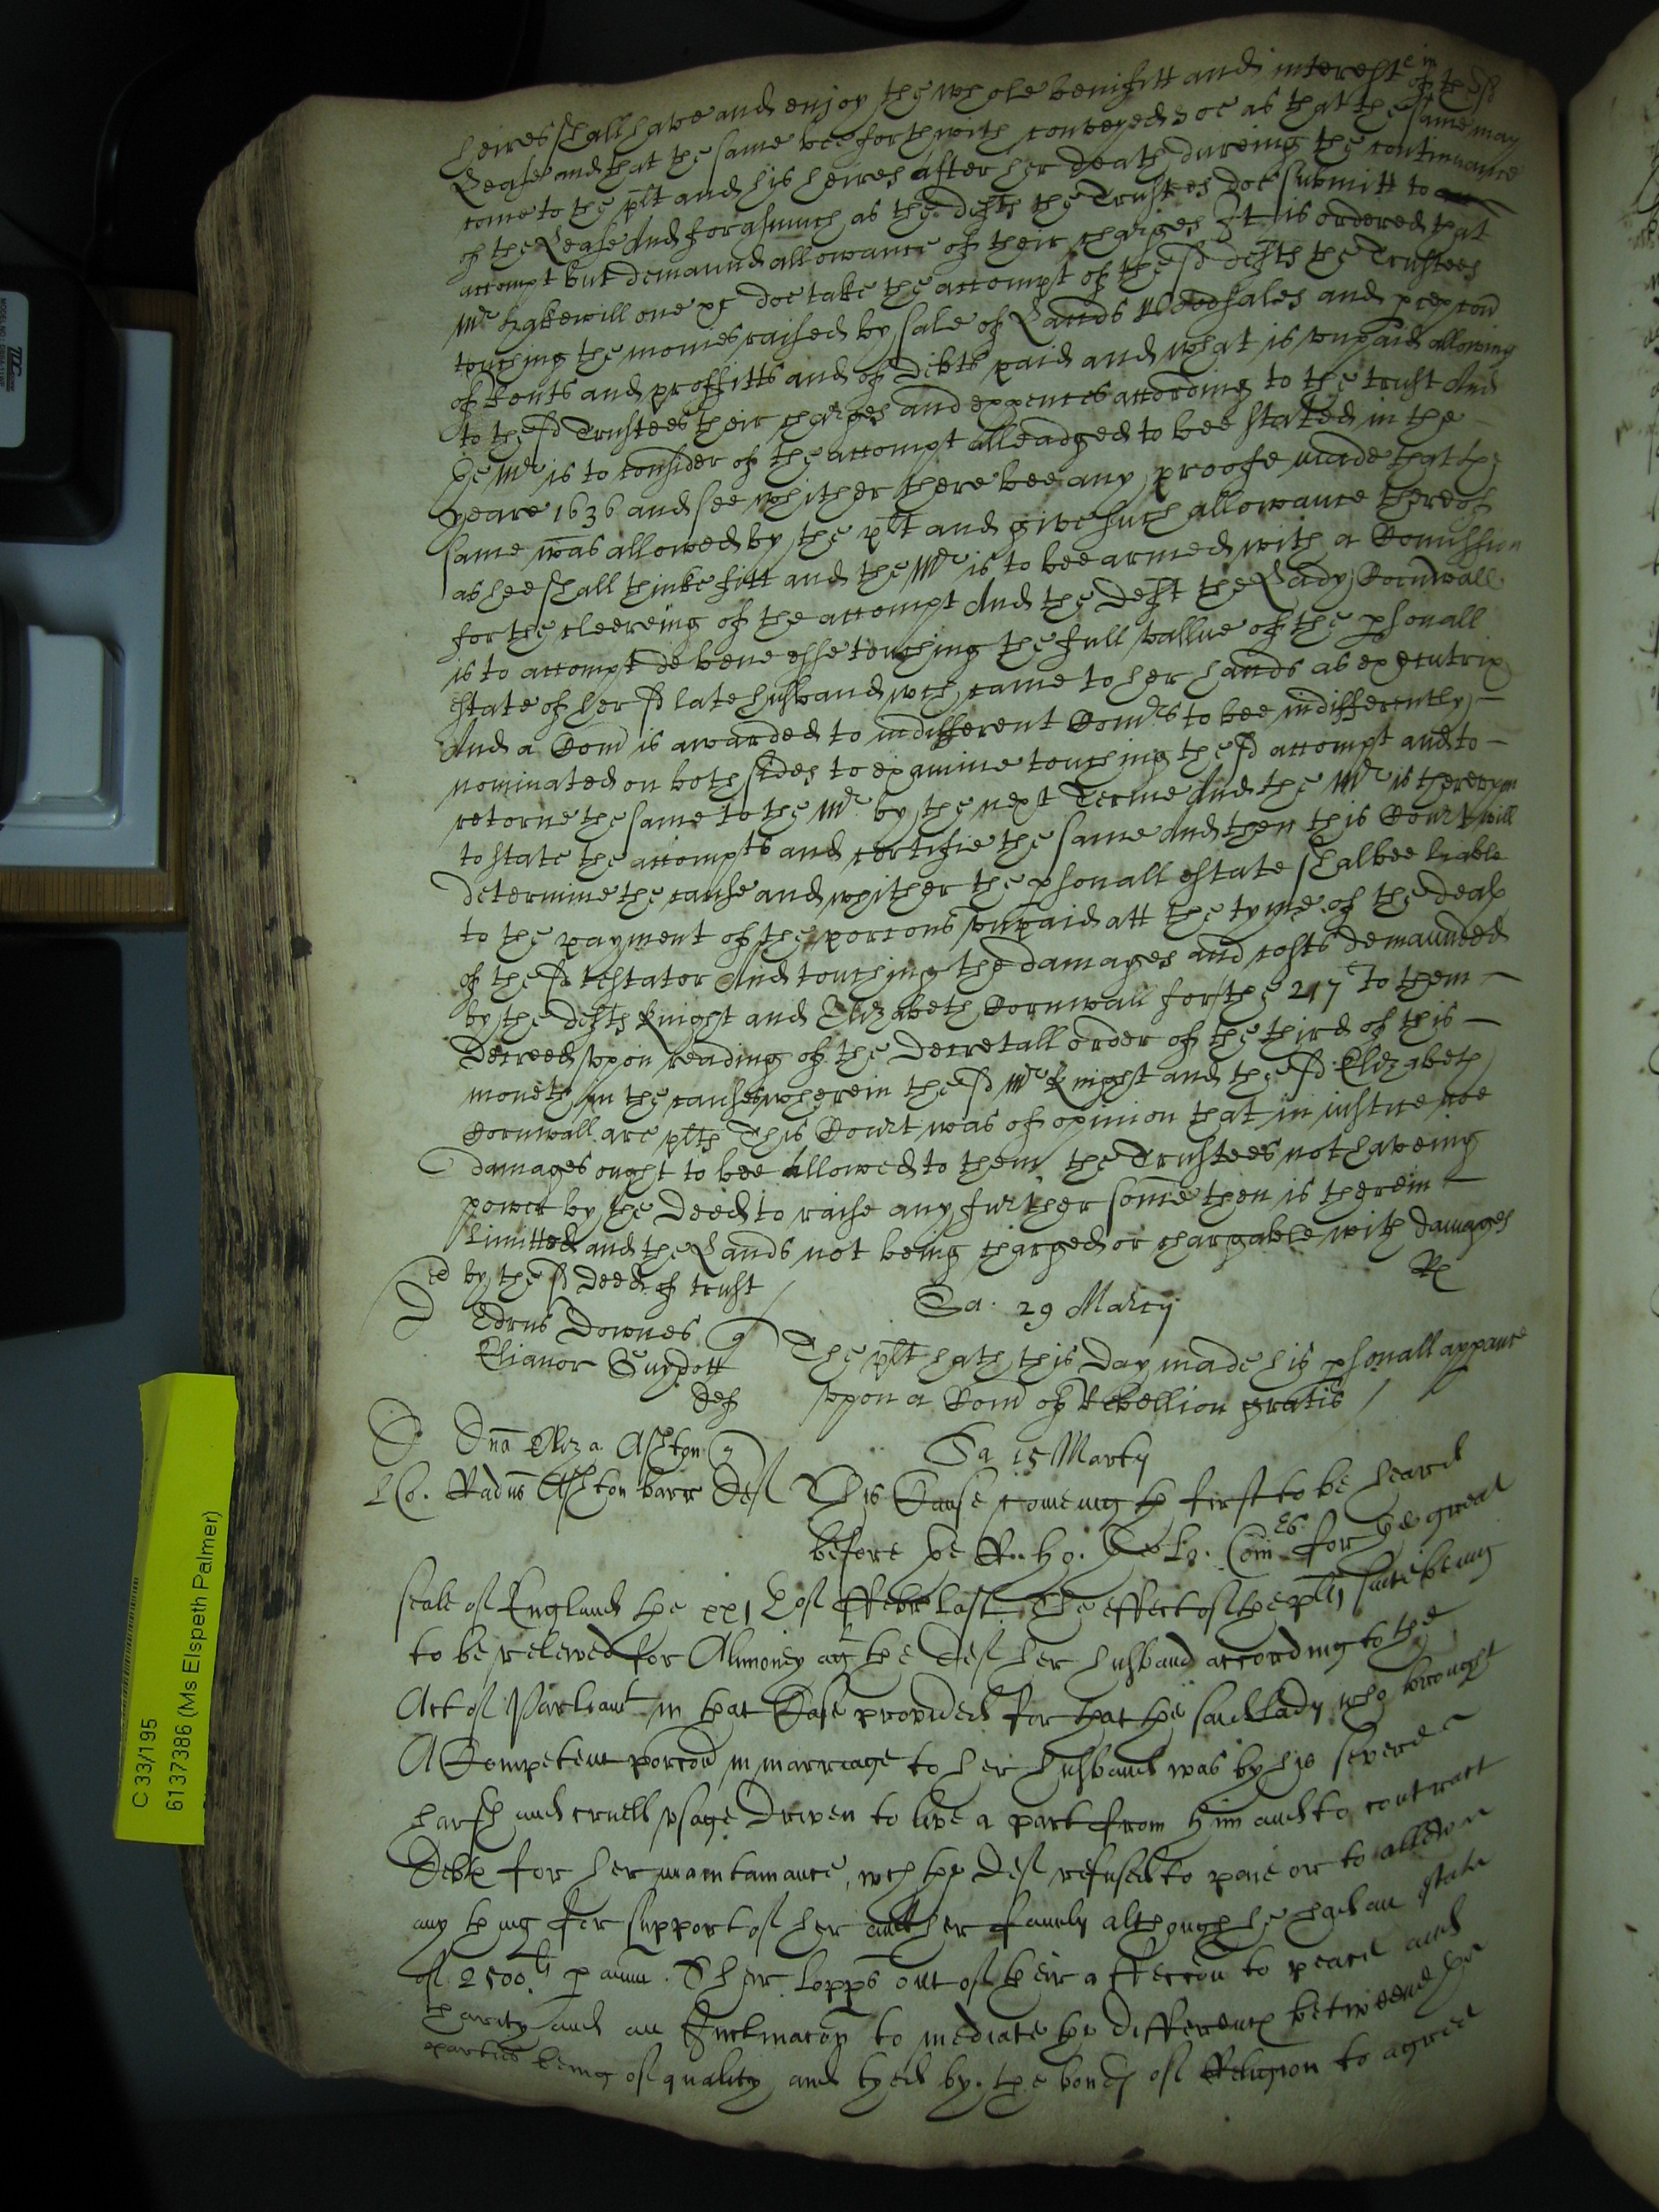 heires shall have and enjoy the whole benifitt and interest e in of the sd
Lease and that the same bee forthwith conveyed soe as that the same may
come to the plt and his heires after her death dureing the continuance
of the Lease And forasmuch as the defts the Trustees doe submitt to
accompt but demaund allowance of their charges It is ordered that
Mr Hakewill one &c doe take the accompt of the sd defts the Trustees
touching the monies raised by sale of Lands Woodsales and pcepcon
of Rents and proffitts and of debts paid and what is unpaid allowing
to the sd Trustees their charges and expences according to the trust And
ye Mr is to consider of the accompt alleadged to bee stated in the
yeare 1636 and see whither there bee any proofe made that the
same was allowed by the plt and give such allowance thereof
as hee shall thinke fitt and the Mr is to bee armed with a Comission
for the cleereing of the accompt And the deft the Lady Cornwall
is to accompt de bene esse touching the full vallue of the psonall
estate of her sd late husband wch came to her hands as executrix
And a Com is awarded to indifferent Comrs to bee indifferently
nominated on both sides to examine touching the sd accompt and to
retorne the same to the Mr by the next Terme And the Mr is thereupon
to state the accompts and certifie the same And then this Court will
determine the cause and whither the psonall estate shalbee liable
to the payment of the porcons unpaid att the tyme of the death
of the sd testator And touching the damages and costs demaunded
by the defts Knight and Elizabeth Cornwall for the 217 to them
decreed upon reading of the decretall order of the third of this
moneth in the causes wherein the sd Mr Knight and the sd Elizabeth
Cornwall are plts This Court was of opinion that in iustice noe
damages ought to bee allowed to them the Trustees not haveing
power by the deed to raise any further some then is therein
limitted and the Lands not being charged or chargable with damages
by the sd deed of trust
Sa. 29 Marcij
Edrus Downes q
Elianor
def
The plt hath this day made his psonall appance
upon a Com of Rebellion gratis
Dna Eliza Ashton q
Sa 15 Martij
Radus Ashton barr Def
This Cause comeing the first to be heard
before the Rt. ho. the Lo. Com for the great
seale of England the xxj of Febr last. The effect of the plts suite being
to be releived for Alimoney agt the def her husband according to the
Act of Parliamt in that Case provided for that the said Lady who brought
A Competent porcon in marriage to her husband was by his severe
harsh and cruell usage driven to live a part from him and to contract
debts for her maintainance, wch the def refused to paie or to allow
any thing for support of her and her family although he had an state
of 2500li p ann. Their Lopps out of their affeccon to peace and
charity and an Inclinacon to mediate the differences betweene the
parties being of quality and tyed by the bonds of Religion to agree
C 33/195
6137386 (Ms Elspeth Palmer)